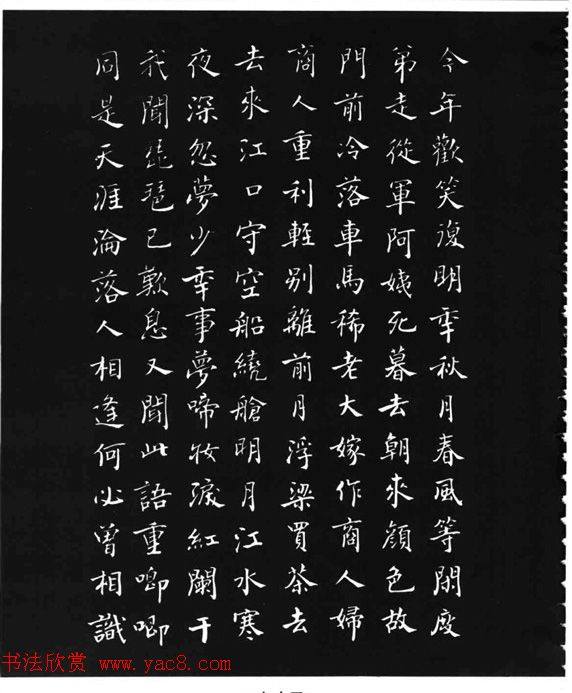 今年歡笑復明年秋月春風等閒度
弟走從軍阿姨死暮去朝來顏色故
門前冷落車馬稀老大嫁作商人婦
商人重利輕別離前月浮梁買茶去
去來江口守空船繞艙明月江水寒
夜深忽夢少年事夢啼妝淚紅闌干
我聞琵琶已歎息又聞此語重唧唧
同是天涯淪落人相逢何必曾相識
书法欣赏 www.yac8.com